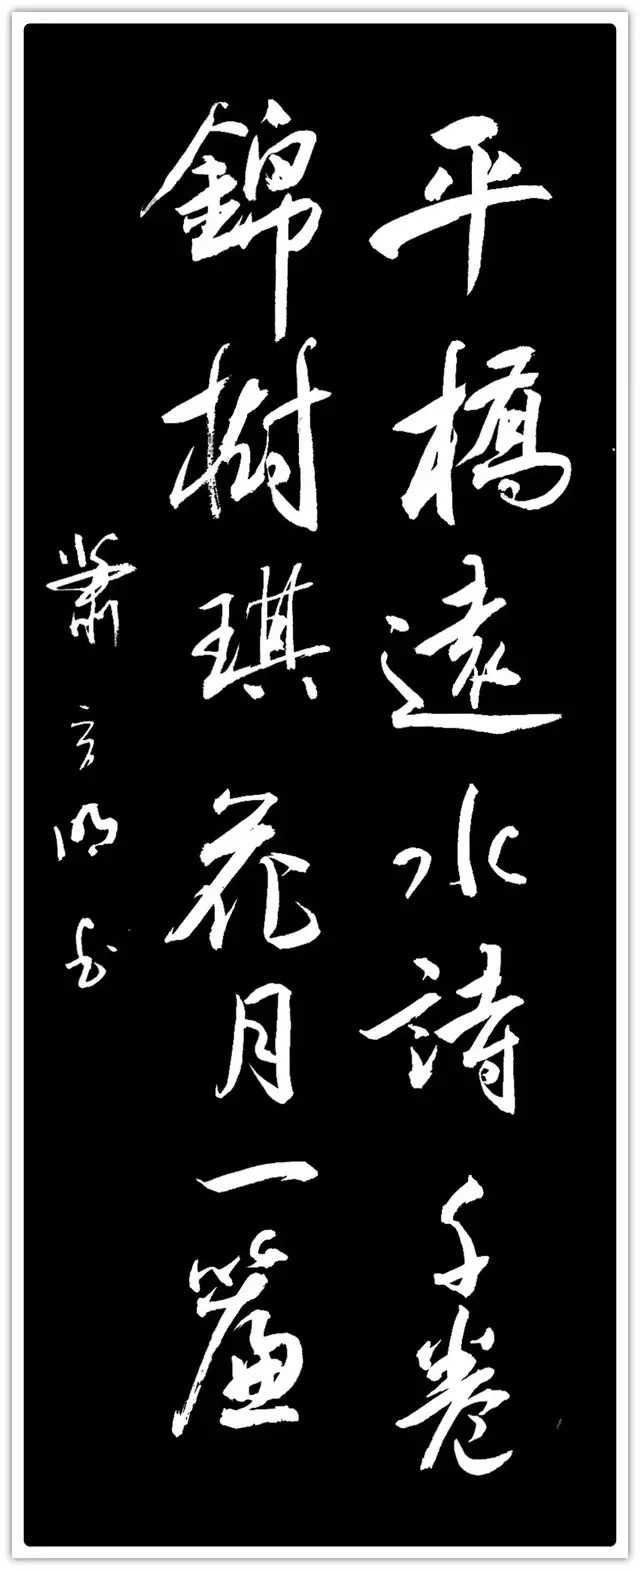 平橋遠水詩千卷
錦樹琪花月一簾
蕭方明书